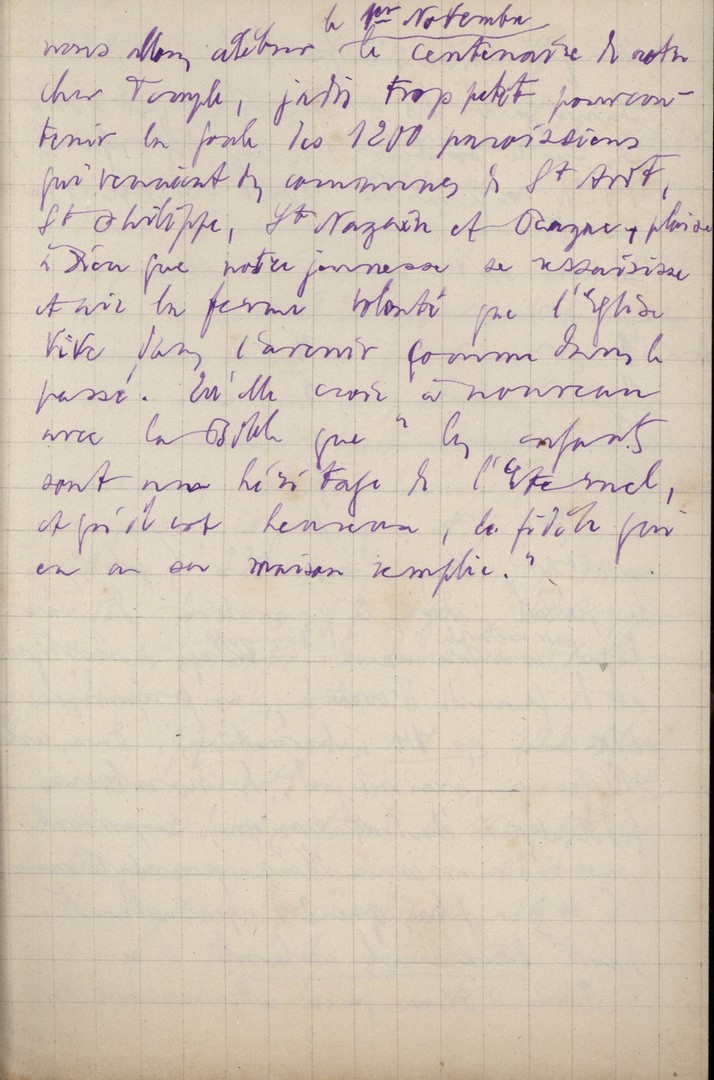 le 1er Novembre
nous allons célébrer le centenaire de notre
cher Temple, jadis trop petit pour con-
tenir la foule des 1200 paroissiens
qui venaient des communes de St Avit,
St Philippe, St Nazaire et plaise
à Dieu que notre jeunesse se ressaisisse
et aie la ferme volonté que l'Eglise
vive dans l'avenir comme dans le
passé. Qu'elle croie à nouveau
avec la Bible que "les enfants
sont un héritage de l'Eternel,
et qu'il est heureux, le fidèle qui
en a sa maison remplie."